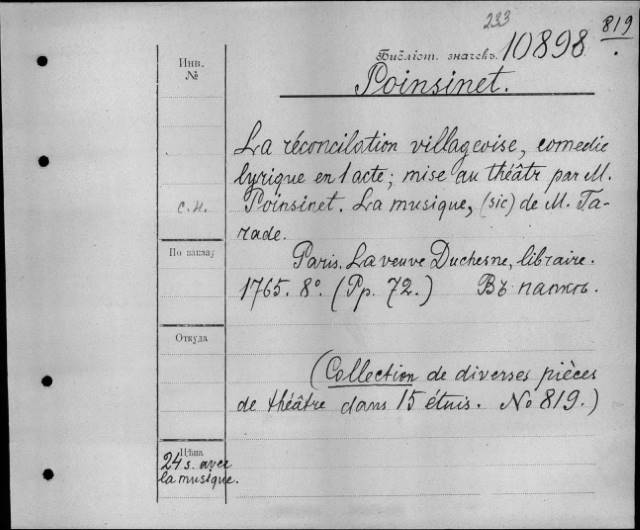 233
819
Библіот. значекъ. 10898.
Инв.
№
Poinsinet.
La réconcilation villageoise, comedie
lyrique en 1 acte; mise au théâtr par M.
с.н.
Poinsinet. La musique, (sic) de M. Ta-
rade.
По заказу
Paris. La veuve Duchesne, libraire.
1765. 8º. (Pp. 72.) Въ папкѣ.
Откуда
(Collection de diverses pièces
de théâtre dans 15 étuis. No 819.)
Цѣна
24 s. avec
la musique.